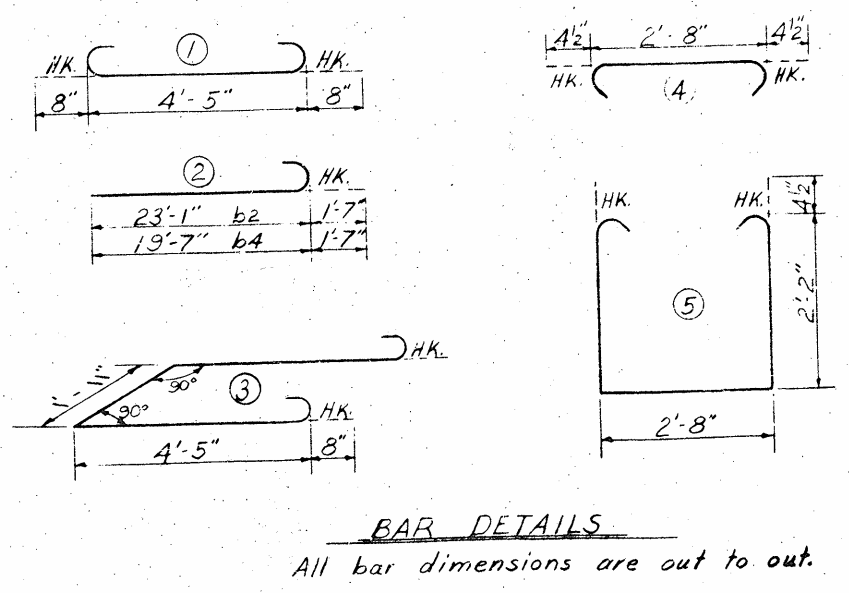 HK. 1 HK.
8" 4'-5" 8"
2 HK.
23'-1" b2 1'-7"
19'-7" b4 1'-7"
HK.
1'-11" 90° 3
90° HK.
4'-5" 8"
4½" 2'-8" 4½"
HK. (4) HK.
HK. HK. 4½"
5 2'-2"
2'-8"
BAR DETAILS
All bar dimensions are out to out.